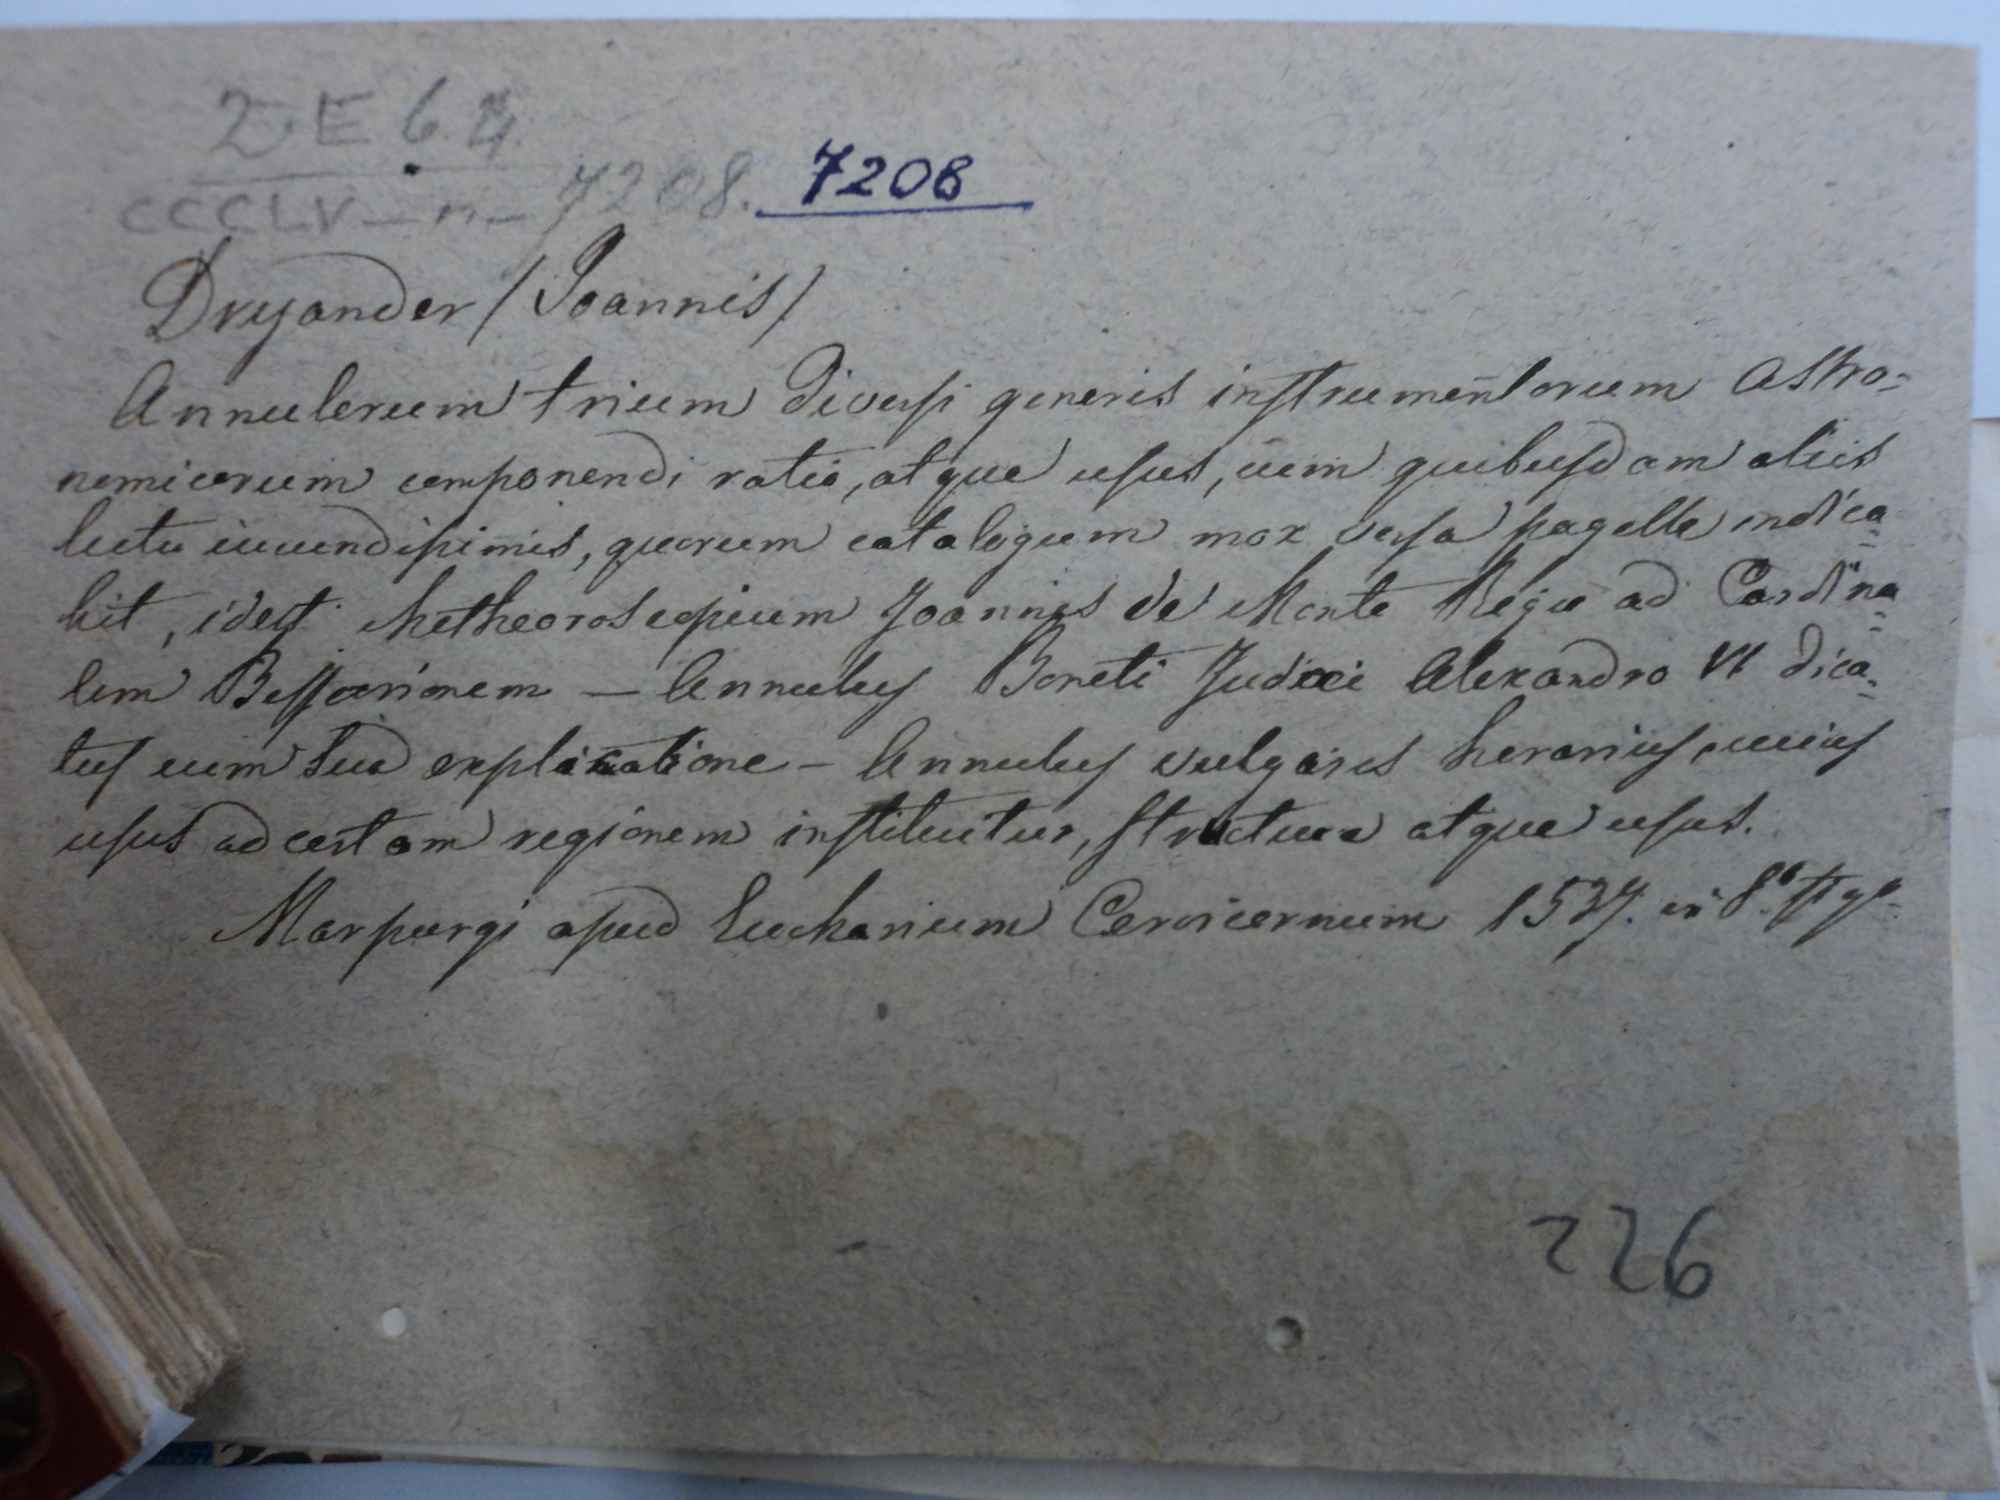 2 E 6. 4.
CCCLV - n - 7208. 7208
Dryander (Joannis)
Annulorum trium diversi generis instrumentorum Astro=
nomicorum componendi ratio, atque usus, cum quibusdam aliis
lectu iucundissimis, quorum catalogum mox versa pagella indica=
bit, idest Metheoroscopium Joannis de Monte Regio ad Cardina=
lem Bessarionem — Annulus Boneti Judaei Alexandro VI dica=
tus cum sua explicatione — Annulus vulgaris horarius, cuius
usus ad certam regionem instituitur, structura atque usus.
Marpurgi apud Eucharium Cervicornum 1537. in 8.°
226